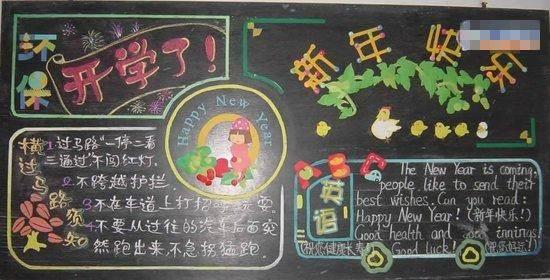 环保
开学了!
新年
Happy New Year
横过马路须知
1.过马路"一停二看
三通过"不闯红灯.
2.不跨越护拦.
3.不在车道上打招呼玩耍.
4.不要从过往的汽车后面突
然跑出来,不急拐猛跑.
英语
The New Year is coming,
people like to send their
best wishes. Can you read:
Happy New Year! (新年快乐!)
Good health and good innings!
(祝你健康长寿!) Good luck! (祝您好运!)